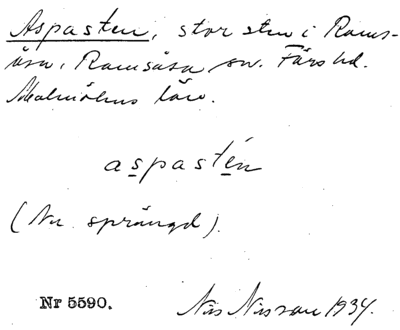 Aspasten, stor sten i Rams-
åsa, Ramsåsa sn. Färs hd.
Malmöhus län.
aspastén
(Nu sprängd).
Nr 5590.
Nils Nilsson 1934.